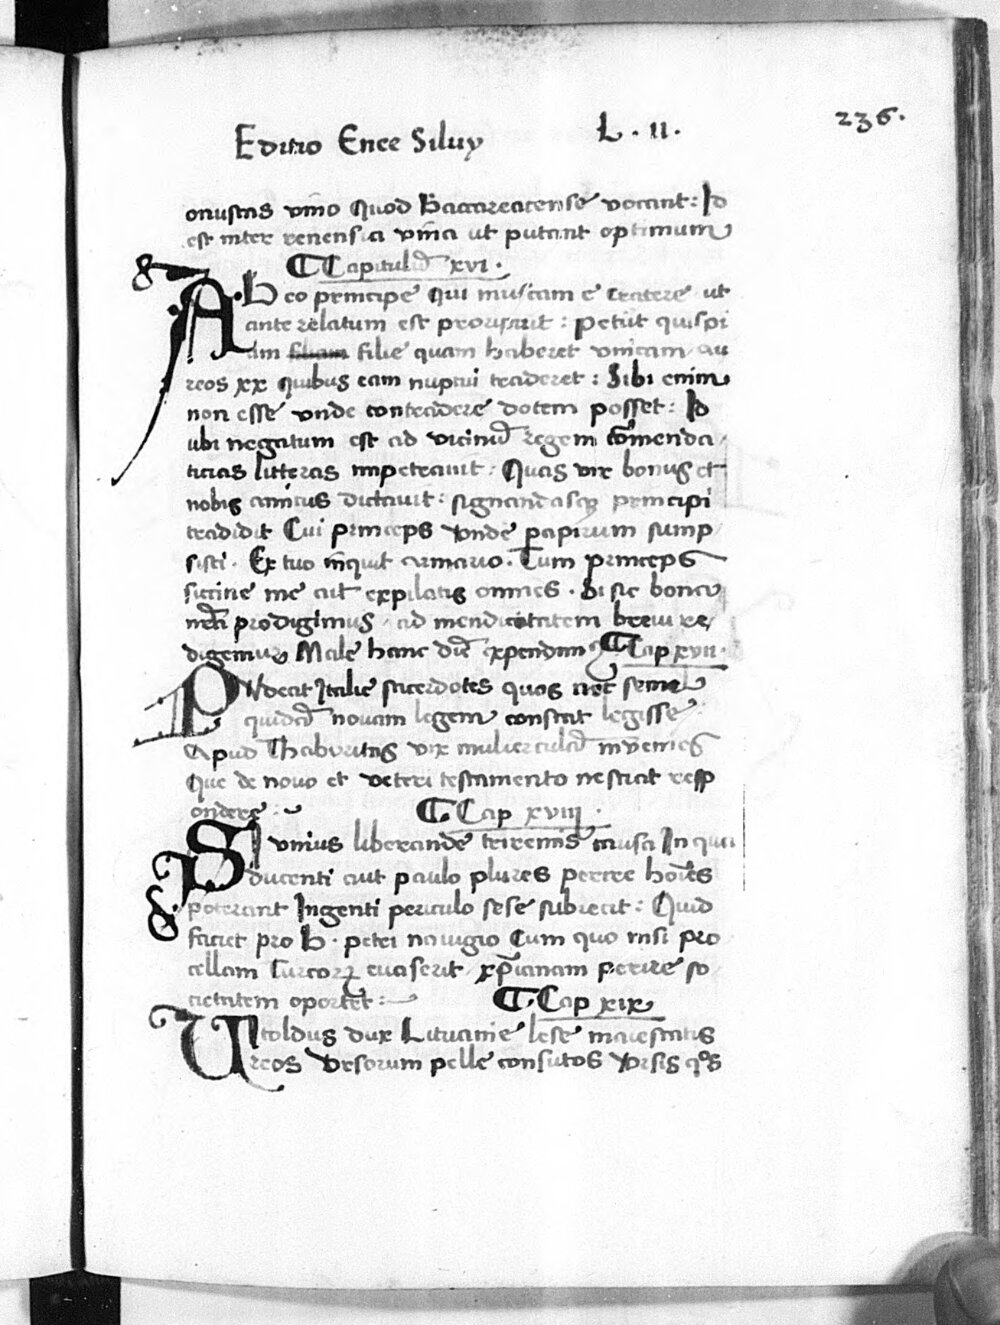 Editio Enee Siluij L . II . 236.
onustas vino quod Baccareacense vocant : Id
est inter renensia vina ut putant optimum
Capitulũ xvi .
Ab eo principe qui muscam e cratere ut
ante relatum est proiisciit : petiit quispi
am filie quam haberet vnicam au
reos xx quibus eam nuptui traderet : Sibi enim
non esse vnde contradere dotem posset : Id
ubi negatum est ad vicinũ regem cõmenda
ticias litteras impetrauit : Quas vir bonus et
nobis amicus dictauit : signandasq; principi
tradidit Cui princeps vnde papirum sump
sisti . Ex tuo inquit armario . Tum princeps
siccine me ait expilatis omnes . Si sic bonu
prodigimus ad mendicitatem breui re
digemur Male hanc diẽ expendim9 Cap xvii .
Pvdeat Italie sacerdotes quos nec semel
quidẽ novam legem constat legisse
Apud Thaboritas vix mulierculã invenies
Que de novo et veteri testamento nesciat resp
ondere : Cap xviii .
Si vnius liberande triremis causa In qua
ducenti aut paulo plures perire hoĩes
poterant Ingenti periculo sese subiecit : Quid
faciet pro b . petri navigio Cum quo nisi pro
cellam turcorꝝ euaserit xp̃ianam perire so
cietatem oportet : Cap xix
Vitoldus dux Lituanie lese maiestatis
reos Vrsorum pelle consutos Vrsis qͦs